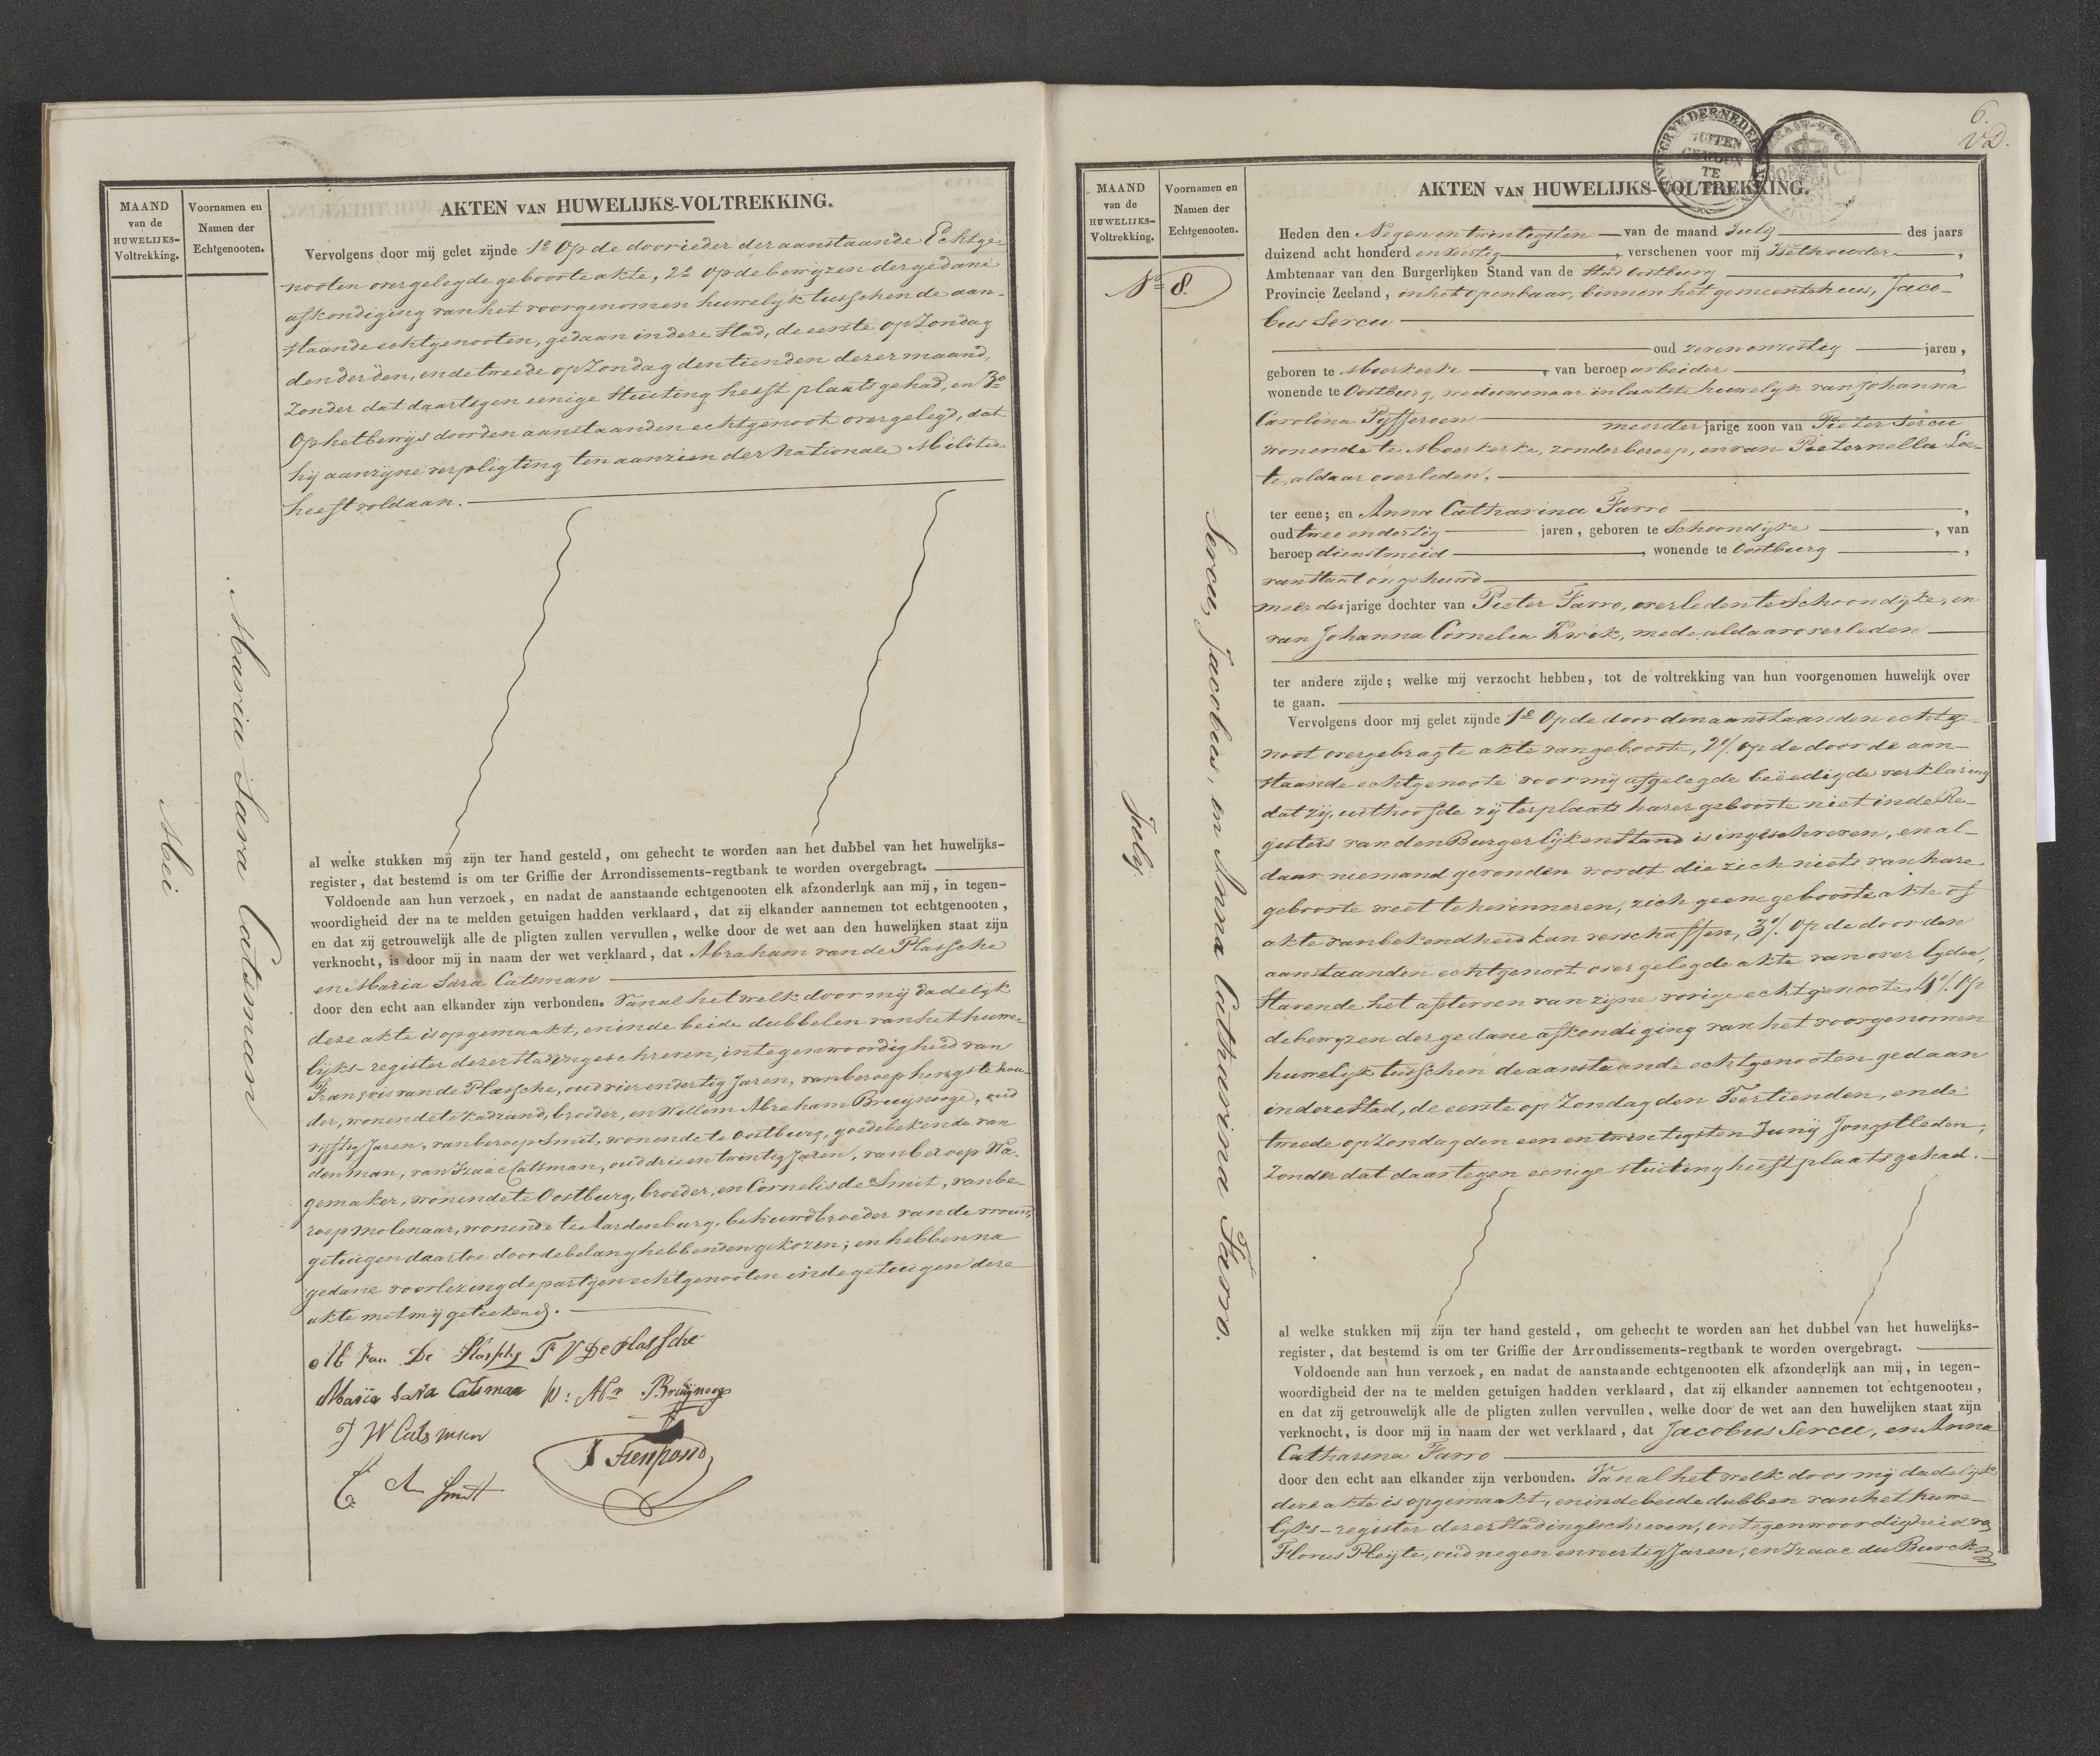 MAAND
van de
HUWELIJKS-
Voltrekking.
Voornamen en
Namen der
Echtgenooten.
AKTEN VAN HUWELIJKS-VOLTREKKING.
Mei
Maria Sara Catsman
Vervolgens door mij gelet zijnde 1º Op de door ieder der aanstaande Echtge-
nooten overgelegde geboorte akte, 2º Op de bewijzen der gedane
afkondiging van het voorgenomen huwelijk tusschen de aan-
staande echtgenooten, gedaan in deze Stad, de eerste op Zondag
den derden, en de tweede op Zondag den tienden dezer maand,
zonder dat daartegen eenige stuiting heeft plaats gehad, en 3º
Op het bewijs door den aanstaanden echtgenoot overgelegd, dat
hij aan zijne verpligting ten aanzien der Nationale Militie
heeft voldaan.
al welke stukken mij zijn ter hand gesteld, om gehecht te worden aan het dubbel van het huwelijks-
register, dat bestemd is om ter Griffie der Arrondissements-regtbank te worden overgebragt.
Voldoende aan hun verzoek, en nadat de aanstaande echtgenooten elk afzonderlijk aan mij, in tegen-
woordigheid der na te melden getuigen hadden verklaard, dat zij elkander aannemen tot echtgenooten,
en dat zij getrouwelijk alle de pligten zullen vervullen, welke door de wet aan den huwelijken staat zijn
verknocht, is door mij in naam der wet verklaard, dat Abraham van de Plassche
en Maria Sara Catsman
door den echt aan elkander zijn verbonden. Van al het welk door mij dadelijk
deze akte is opgemaakt, en in de beide dubbelen van het huwe-
lijks-register dezer Stad ingeschreven, in tegenwoordigheid van
François van de Plassche, oud vier en dertig Jaren, van beroep hengstehou-
der, wonende te Kadzand, broeder, en Willem Abraham Bruijnooge, oud
vijftig Jaren, van beroep Smit, wonende te Oostburg, goede bekende van
den man, van Izaac Catsman, oud drie en twintig Jaren, van beroep Wa-
gemaker, wonende te Oostburg, broeder, en Cornelis de Smit, van be-
roep molenaar, wonende te Aardenburg, behuwdbroeder van de vrouw,
getuigen daartoe door de belanghebbenden gekozen; en hebben na
gedane voorlezing de partijen echtgenooten en de getuigen deze
akte met mij geteekend.
Ab van De Plassche F V De Plassche
Maria Sara Catsman W: Abr Bruijnooge
J W Catsman
C de Smit
6.
VD.
MAAND
van de
HUWELIJKS-
Voltrekking.
Voornamen en
Namen der
Echtgenooten.
AKTEN VAN HUWELIJKS-VOLTREKKING.
Nº 8.
July
Sercu, Jacobus, en Anna Catharina Farro.
Heden den Negen en twintigsten van de maand July des jaars
duizend acht honderd en veertig, verschenen voor mij Wethouder,
Ambtenaar van den Burgerlijken Stand van de Stad Oostburg
Provincie Zeeland, in het openbaar, binnen het gemeentehuis, Jaco-
bus Sercu
oud zeven en zestig jaren,
geboren te Moerkerke, van beroep arbeider,
wonende te Oostburg, weduwenaar in laatste huwelijk van Johanna
Carolina Pyffereen
meerderjarige zoon van Pieter Sercu
wonende te Moerkerke, zonder beroep, en van Pieternella Loe-
te, aldaar overleden,
ter eene; en Anna Catharina Farro,
oud twee en dertig jaren, geboren te Schoondijke, van
beroep dienstmeid, wonende te Oostburg,
van staat ongehuwd
meerderjarige dochter van Pieter Farro, overleden te Schoondijke, en
van Johanna Cornelia Kwik, mede aldaar overleden
ter andere zijde; welke mij verzocht hebben, tot de voltrekking van hun voorgenomen huwelijk over
te gaan.
Vervolgens door mij gelet zijnde 1º Op de door den aanstaanden echtge-
noot overgebragte akte van geboorte, 2º/. op de door de aan-
staande echtgenoote voor mij afgelegde beëedigde verklaring
dat zij, uithoofde zij ter plaats harer geboorte niet in de Re-
gisters van den Burgerlijken Stand is ingeschreven, en al-
daar niemand gevonden wordt die zich niets van hare
geboorte weet te herinneren, zich geene geboorte akte of
akte van bekendheid kan verschaffen, 3º/. Op de door den
aanstaanden echtgenoot overgelegde akte van overlyden,
stavende het afsterven van zijne vorige echtgenoote, 4º/. Op
de bewyzen der gedane afkondiging van het voorgenomen
huwelijk tusschen de aanstaande echtgenooten gedaan
in deze Stad, de eerste op Zondag den Veertienden, en de
tweede op Zondag den een en twintigsten Junij Jongstleden,
zonder dat daartegen eenige stuiting heeft plaats gehad.
al welke stukken mij zijn ter hand gesteld, om gehecht te worden aan het dubbel van het huwelijks-
register, dat bestemd is om ter Griffie der Arrondissements-regtbank te worden overgebragt.
Voldoende aan hun verzoek, en nadat de aanstaande echtgenooten elk afzonderlijk aan mij, in tegen-
woordigheid der na te melden getuigen hadden verklaard, dat zij elkander aannemen tot echtgenooten,
en dat zij getrouwelijk alle de pligten zullen vervullen, welke door de wet aan den huwelijken staat zijn
verknocht, is door mij in naam der wet verklaard, dat Jacobus Sercu, en Anna
Catharina Farro
door den echt aan elkander zijn verbonden. Van al het welk door mij dadelijk
deze akte is opgemaakt, en in de beide dubben van het huwe-
lijks-register dezer Stad ingeschreven, in tegenwoordigheid van
Florus Pleijte, oud negen en veertig Jaren, en Izaac du Burck